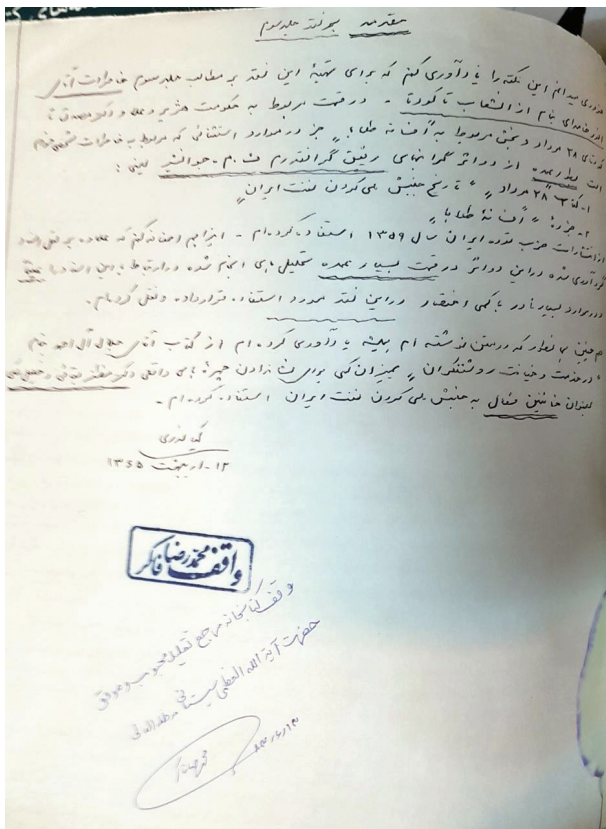 مقدمه بر نقد جلد سوم
ضروری میدانم این نکته را یادآوری کنم که برای تهیهٔ این نقد بر مطالب جلد سوم خاطرات آقای
از انشعاب تا کودتا - در قسمت مربوط به حکومت
کودتای ۲۸ مرداد و بخش مربوط به "افسانه طلاها" جز در موارد استثنائی که مربوط به خاطرات شخصی
است بطور عمده از دو اثر گرانبهای رفیق گرانقدرم ف. م. جوانشیر یعنی:
۱- کتاب "۲۸ مرداد" "تاریخ جنبش ملی کردن نفت ایران"
۲- جزوهٔ "افسانهٔ طلاها"
از انتشارات حزب توده ایران سال ۱۳۵۹ استفاده کرده‌ام - اضافه کنم که علاوه بر نقل
گردآوری شده در این دو اثر در قسمت بسیار عمده تحلیل های انجام شده
در موارد بسیار نادر با کمی اختصار در این نقد مورد استفاده قرار داده و نقل کرده‌ام.
همچنین همانطور که در متن نوشته ام یادآوری کرده ام از کتاب آقای جلال آل احمد بنام
"در خدمت و خیانت روشنفکران" برای نشان دادن چهرهٔ واقعی دکتر مظفر بقائی و
بعنوان خائنین فعال به جنبش ملی کردن نفت ایران استفاده کرده ام.
کیانوری
۱۲ - اردیبهشت ۱۳۶۵
واقف محمدرضا فاکر
وقف کتابخانه مراجع تقلید محبوب و موفق
حضرت آیة الله العظمی سیستانی مدظله العالی